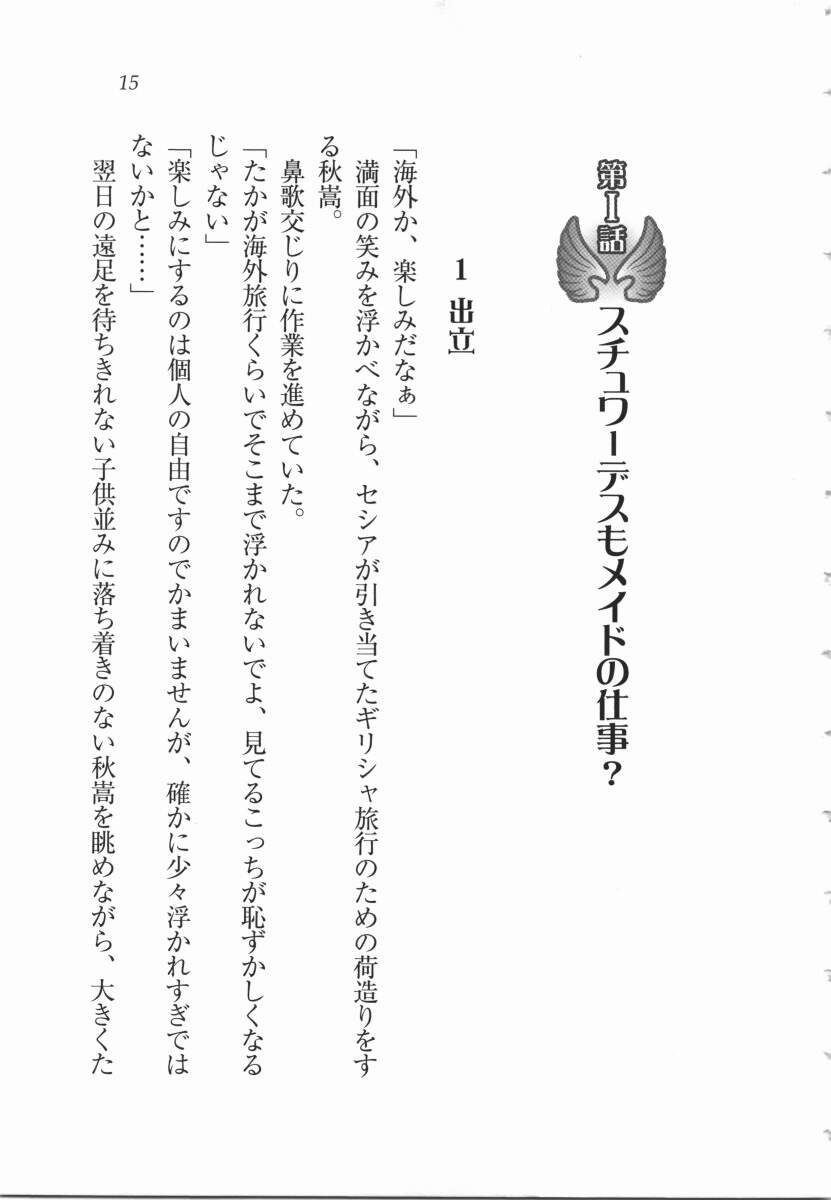 15
第1話
スチュワーデスもメイドの仕事?
1 出立
「海外か、楽しみだなぁ」
満面の笑みを浮かべながら、セシアが引き当てたギリシャ旅行のための荷造りをす
る秋嵩。
鼻歌交じりに作業を進めていた。
「たかが海外旅行くらいでそこまで浮かれないでよ、見てるこっちが恥ずかしくなる
じゃない」
「楽しみにするのは個人の自由ですのでかまいませんが、確かに少々浮かれすぎでは
ないかと……」
翌日の遠足を待ちきれない子供並みに落ち着きのない秋嵩を眺めながら、大きくた